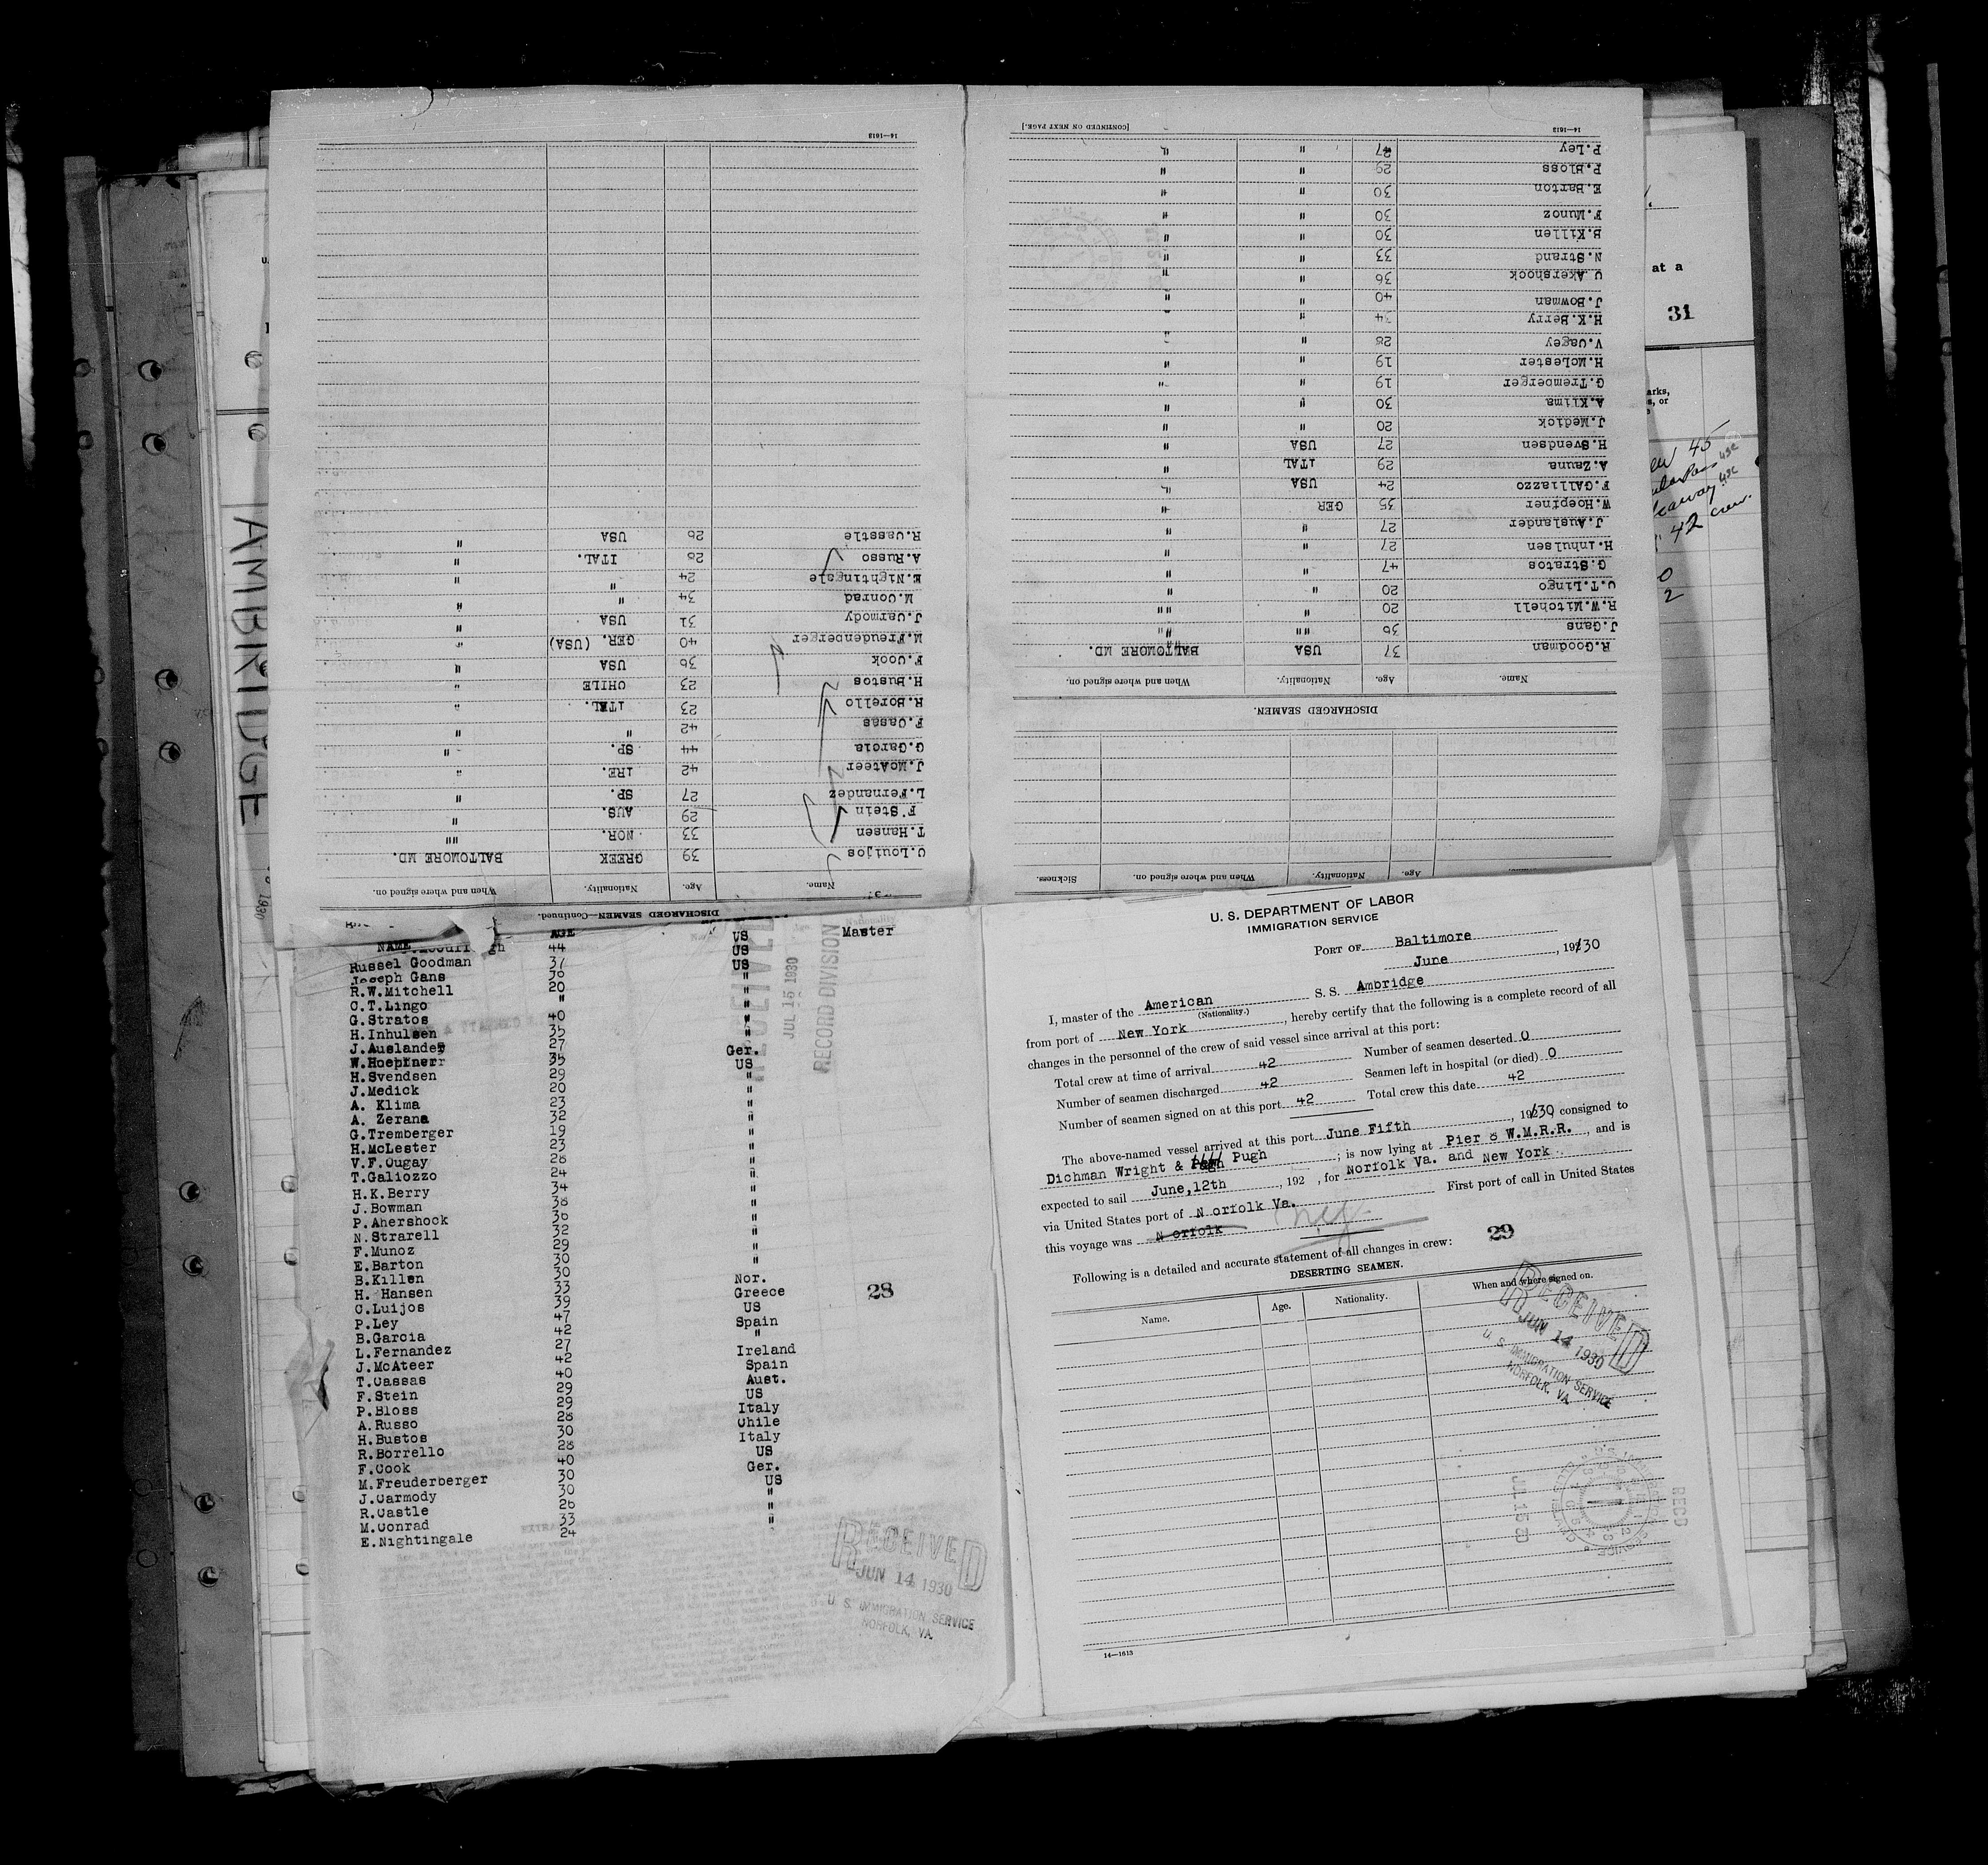 14—1613
R.Casstle 26 USA "
A.Russo 28 ITAL. "
E.Nightingale 24 " "
M.Conrad 34 " "
J.Carmody 31 USA "
M.Freudenberger 40 GER. (USA) "
F.Cook 36 USA "
H.Bustos 23 CHILE "
R.Borello 23 ITAL. "
F.Casas 42 " "
G.Garcia 44 SP. "
J.McAteer 42 IRE. "
L.Fernandez 27 SP. "
F.Stein 29 AUS. "
T.Hansen 33 NOR. ""
C.Louijos 39 GREEK BALTOMORE MD.
Name. Age. Nationality. When and where signed on.
DISCHARGED SEAMEN—Continued.
14—1613 [CONTINUED ON NEXT PAGE.]
P.Ley 47 " "
P.Bloss 29 " "
E.Barton 30 " "
F.Munoz 30 " "
B.Killen 30 " "
N.Strand 33 " "
C Akershock 36 " "
J.Bowman 40 " "
H.K.Berry 34 " "
V.Cagey 28 " "
H.McLester 19 " "
G.Tremberger 19 " "
A.Klima 30 " "
J.Medick 20 " "
H.Svendsen 27 USA "
A.Zauna 29 ITAL "
F.GAlliazzo 24 USA "
W.Hoepfner 35 GER "
J.Auslander 27 " "
H.Inhulsen 27 " "
G.Stratos 47 " "
C.T.Lingo 20 " "
R.W.Mitchell 20 " ""
J.Gans 36 "" ""
R.Goodman 37 USA BALTOMORE MD.
Name. Age. Nationality. When and where signed on.
DISCHARGED SEAMEN.
Age. Nationality. When and where signed on. Sickness.
AMBRIDGE
1930
at a
31
arks,
s, or
45
42 crew.
0
2
NAME AGE US Master
44 US
Russel Goodman 37 US
Joseph Gans 36 "
R.W.Mitchell 20 "
C.T.Lingo " "
G.Stratos 40 "
H.Inhulsen 35 "
J.Auslander 27 Ger.
W.Hoepfnerr 35 US
H.Svendsen 29 "
J.Medick 20 "
A. Klima 23 "
A. Zerana 32 "
G.Tremberger 19 "
H.McLester 23 "
V.F.Cugay 28 "
T.Galiozzo 24 "
H.K.Berry 34 "
J.Bowman 38 "
P.Ahershock 36 "
N.Strarell 32 "
F.Munoz 29 "
E.Barton 30 "
B.Killen 30 Nor.
H. Hansen 33 Greece
C.Luijos 39 US
P.Ley 47 Spain
B.Garcia 42 "
L.Fernandez 27 Ireland
J.McAteer 42 Spain
T.Cassas 40 Aust.
F.Stein 29 US
P.Bloss 29 Italy
A.Russo 28 Chile
H.Bustos 30 Italy
R.Borrello 28 US
F.Cook 40 Ger.
M.Freuderberger 30 US
J.Carmody 30 "
R.Castle 26 "
M.Conrad 33 "
E.Nightingale 24
28
RECEIVED
JUL 15 1930
RECORD DIVISION
RECEIVED
JUN 14 1930
U. S. IMMIGRATION SERVICE
NORFOLK, VA.
U. S. DEPARTMENT OF LABOR
IMMIGRATION SERVICE
PORT OF Baltimore
June , 19230
I, master of the American S. S. Ambridge
(Nationality.)
from port of New York , hereby certify that the following is a complete record of all
changes in the personnel of the crew of said vessel since arrival at this port:
Total crew at time of arrival 42 Number of seamen deserted 0
Number of seamen discharged 42 Seamen left in hospital (or died) 0
Number of seamen signed on at this port 42 Total crew this date 42
The above-named vessel arrived at this port June Fifth , 19230 consigned to
Dichman Wright & Pugh Pugh ; is now lying at Pier 8 W.M.R.R. , and is
expected to sail June,12th , 192 , for Norfolk Va. and New York
via United States port of N orfolk Va. First port of call in United States
this voyage was N orfolk
29
Following is a detailed and accurate statement of all changes in crew:
DESERTING SEAMEN.
Name. Age. Nationality. When and where signed on.
RECEIVED
JUN 14 1930
U. S. IMMIGRATION SERVICE
NORFOLK, VA.
RECD
JUL 15 30
14—1613